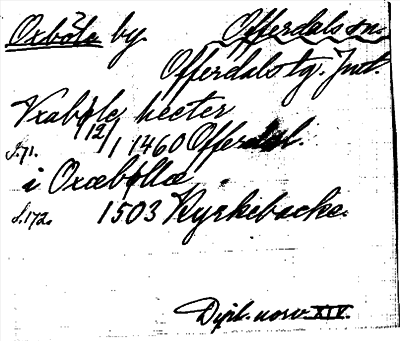 Oxböle by. Offerdals sn.
Offerdals tg. Jmt.
Vxabøle heeter
s. 71. 12/1 1460 Offerdal.
i Oxæbøllæ
s. 172. 1503 Kyrkebacke.
Dipl. norv. XIV.